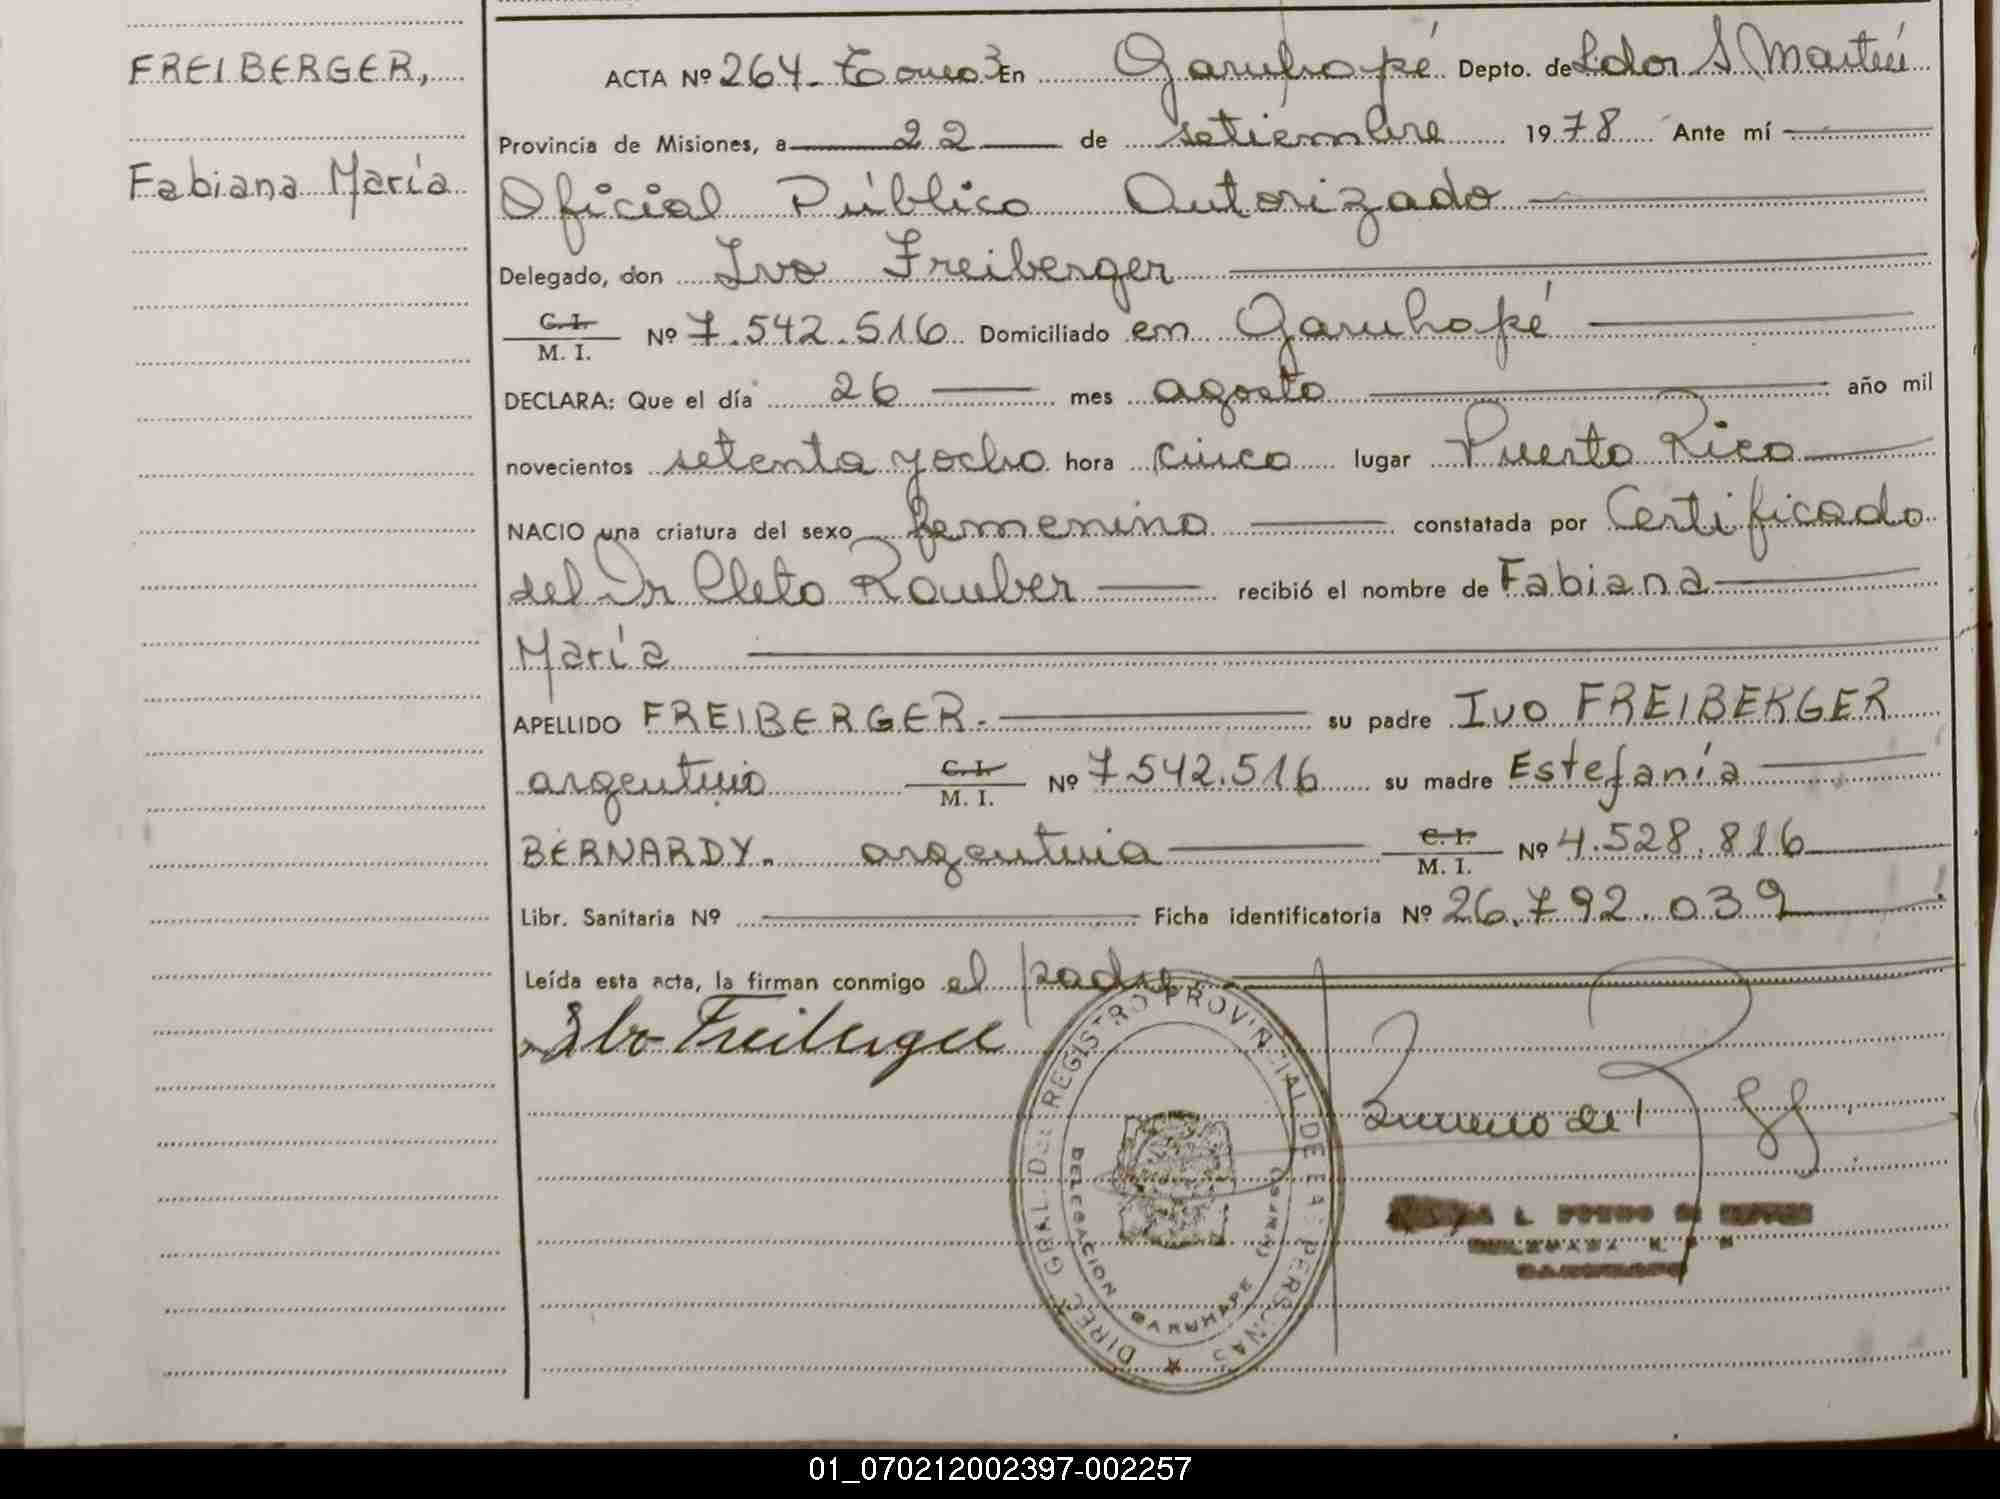 FREIBERGER,
Fabiana María
ACTA Nº 264 - Tomo 3 En Garuhapé Depto. de Ldor S Martín
Provincia de Misiones, a 22 de setiembre 1978 Ante mí
Oficial Público Autorizado
Delegado, don Ivo Freiberger
C. I. / M. I. Nº 7.542.516 Domiciliado en Garuhapé
DECLARA: Que el día 26 mes agosto año mil
novecientos setenta y ocho hora cinco lugar Puerto Rico
NACIO una criatura del sexo femenino constatada por Certificado
del Dr Cleto Rauber recibió el nombre de Fabiana
María
APELLIDO FREIBERGER. su padre Ivo FREIBERGER
argentino C. I. / M. I. Nº 7.542.516 su madre Estefanía
BERNARDY. argentina C. I. / M. I. Nº 4.528.816
Libr. Sanitaria Nº Ficha identificatoria Nº 26.792.039
Leída esta acta, la firman conmigo el padre
Ivo Freiberger
DIREC. GRAL. DEL REGISTRO PROVINCIAL DE LAS PERSONAS
DELEGACION GARUHAPE (MNES.)
01_070212002397-002257